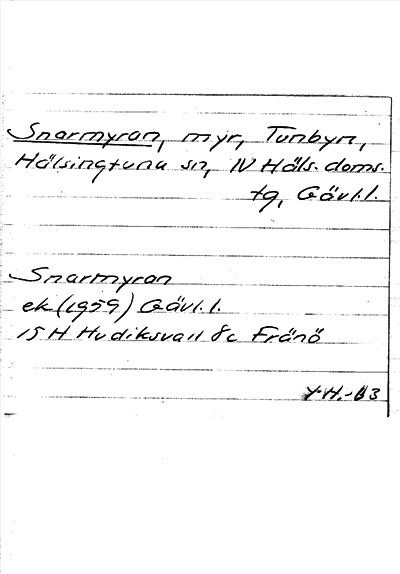 Snarmyran, myr, Tunbyn,
Hälsingtuna sn, N Häls. doms.
tg, Gävl.l.
Snarmyran
ek (1959) Gävl.l.
15 H Hudiksvall 8c Fränö
Y.H.-63